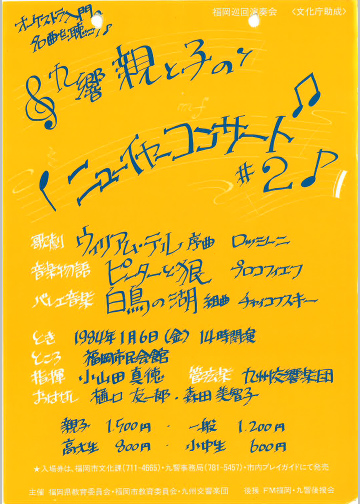 福岡巡回演奏会 〈文化庁助成〉
オーケストラ入門
名曲を聴こう♪
九響親と子の
ニューイヤーコンサート
#2
歌劇 ウィリアム・テル 序曲 ロッシーニ
音楽物語 ピーターと狼 プロコフィエフ
バレエ音楽 白鳥の湖 組曲 チャイコフスキー
とき 1984年1月6日(金) 14時開演
ところ 福岡市民会館
指揮 小山田真徳 管弦楽 九州交響楽団
おはなし 樋口友一郎・森田美智子
親子 1,500円 ・ 一般 1,200円
高大生 800円 ・ 小中生 600円
★入場券は、福岡市文化課(711-4665)・九響事務局(781-5457)・市内プレイガイドにて発売
主催 福岡県教育委員会・福岡市教育委員会・九州交響楽団 後援 FM福岡・九響後援会